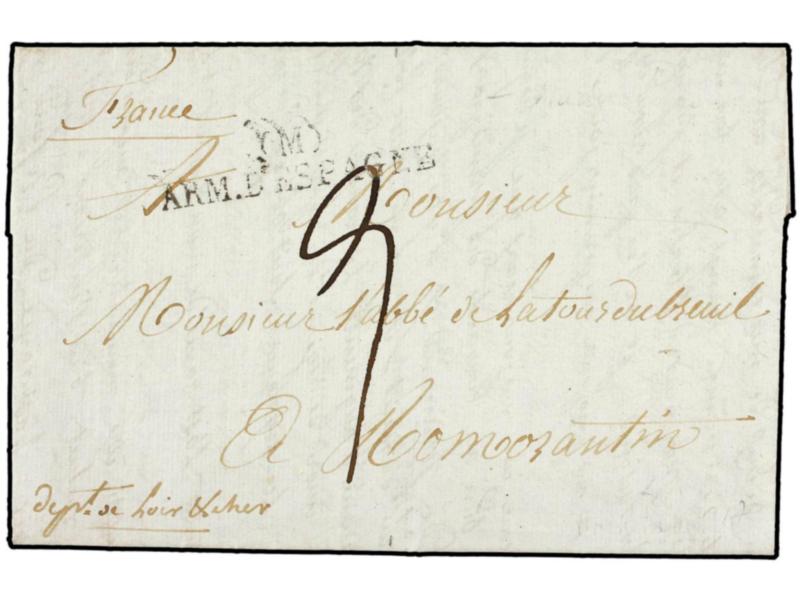 France
(M)
ARM. D'ESPAGNE
A Monsieur
9
Monsieur l'abbé de Latourdubreuil
A Romorantin
dept. de Loir & cher